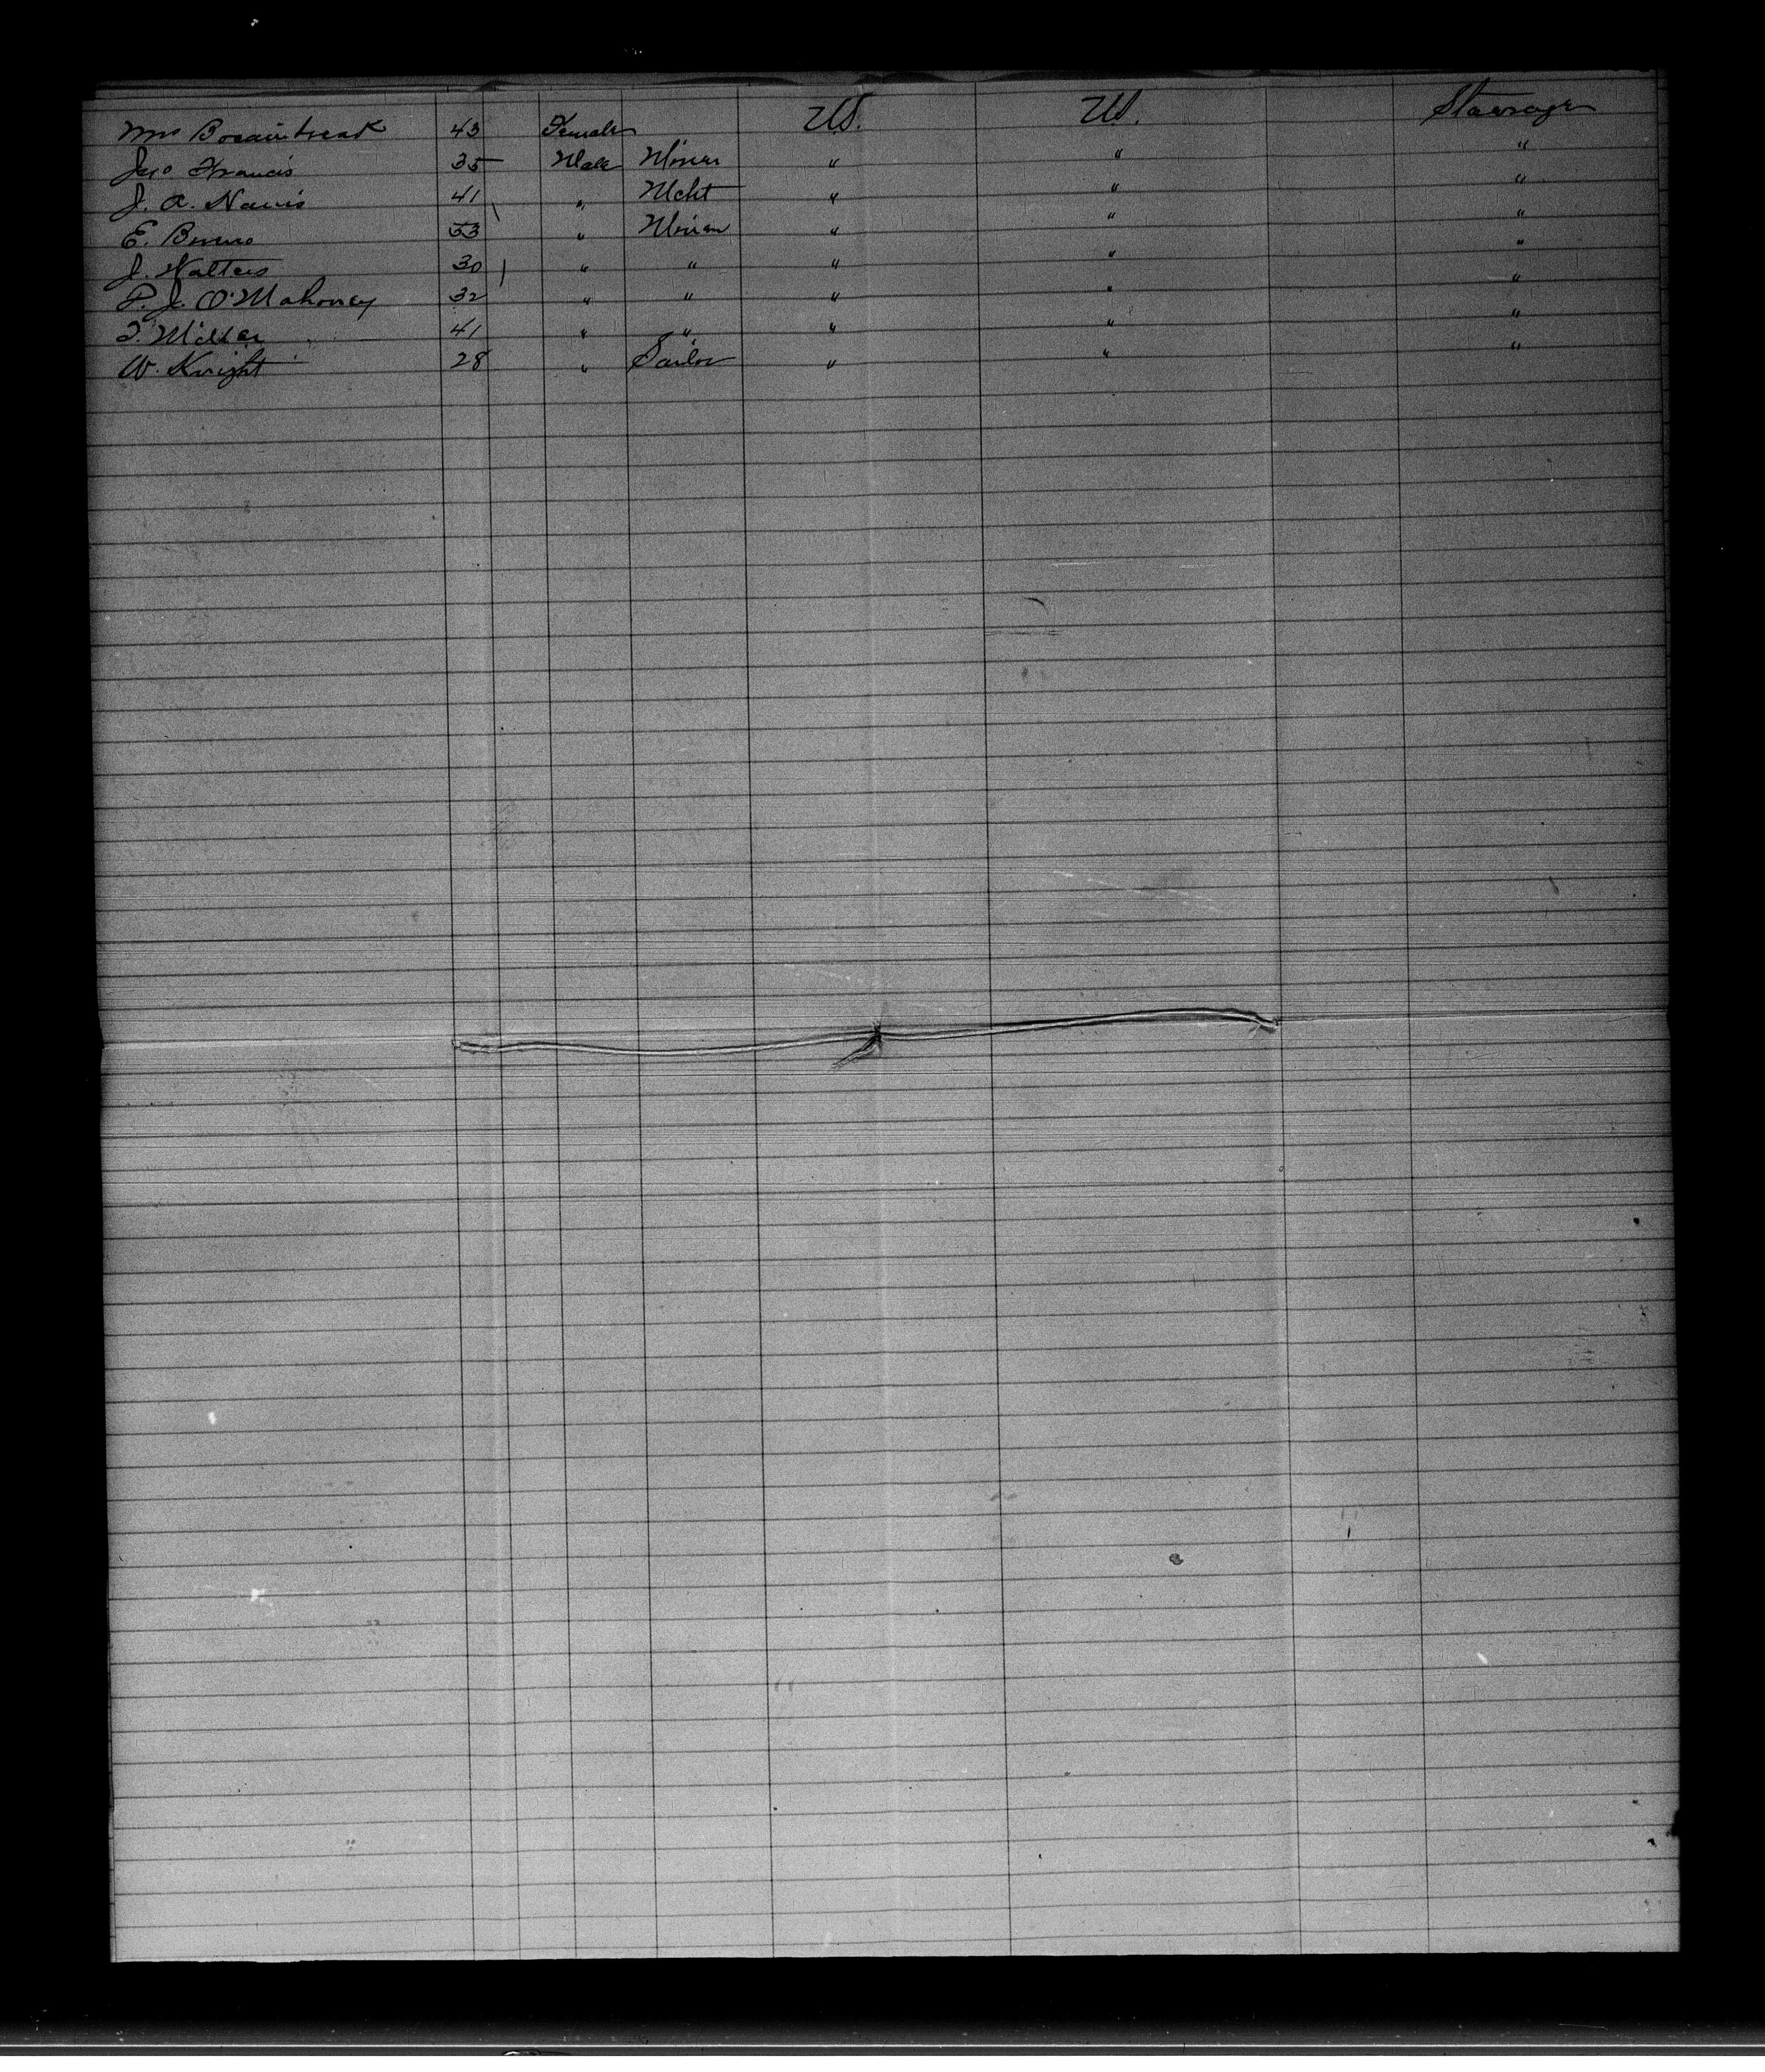 Mrs 43 Female US. US. Stearage
Jno Francis 35 Male Miner " " "
J. A. 41 " Mcht " " "
E. 53 " Miner " " "
J. Walters 30 " " " " "
P. J. O'Mahoney 32 " " " " "
T. Miller 41 " " " " "
W. Knight 28 " Sailor " " "